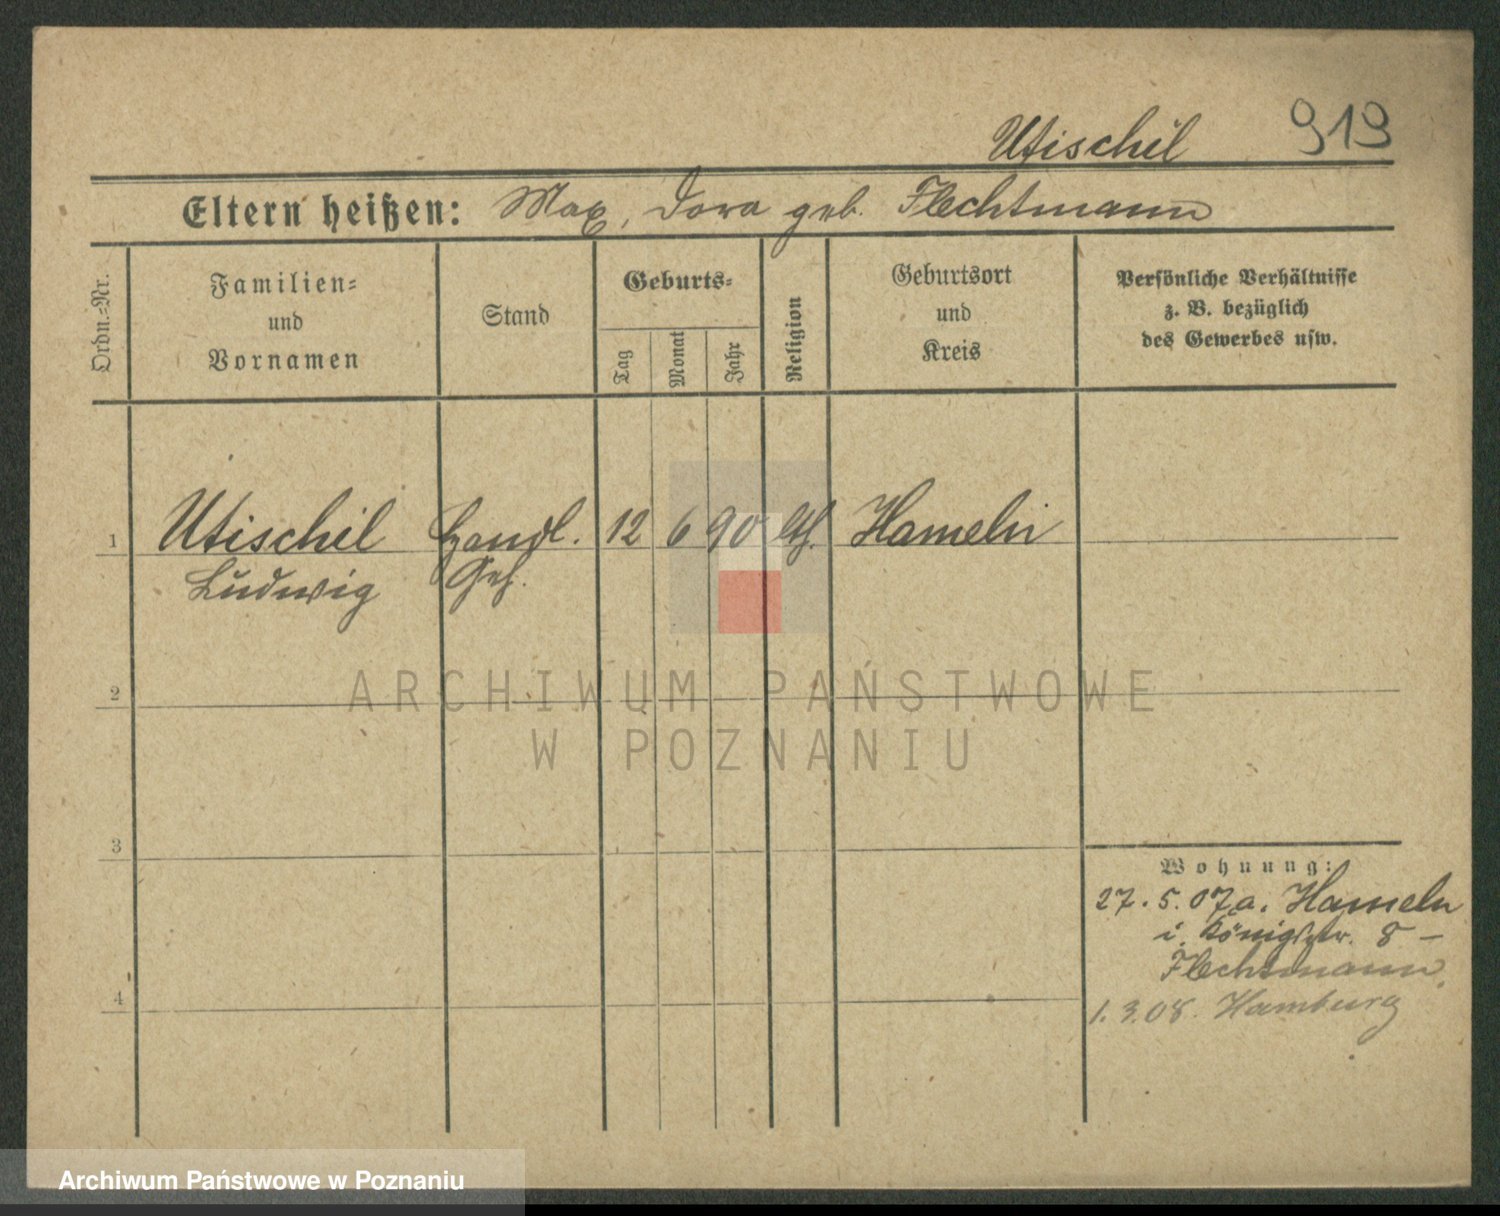 Utischil 919
Eltern heißen: Max, Dora geb. Flechtmann
Ordn.-Nr.
Familien-
und
Vornamen
Stand
Geburts-
Tag
Monat
Jahr
Religion
Geburtsort
und
Kreis
Persönliche Verhältnisse
z. B. bezüglich
des Gewerbes usw.
1 Utischil Handl. 12 6 90 Hameln
Ludwig Geh.
2
ARCHIWUM PAŃSTWOWE
W POZNANIU
3
Wohnung:
27. 5. 07 a. Hameln
i. Königstr. 8 –
Flechtmann.
4
1. 3. 08. Hamburg
Archiwum Państwowe w Poznaniu